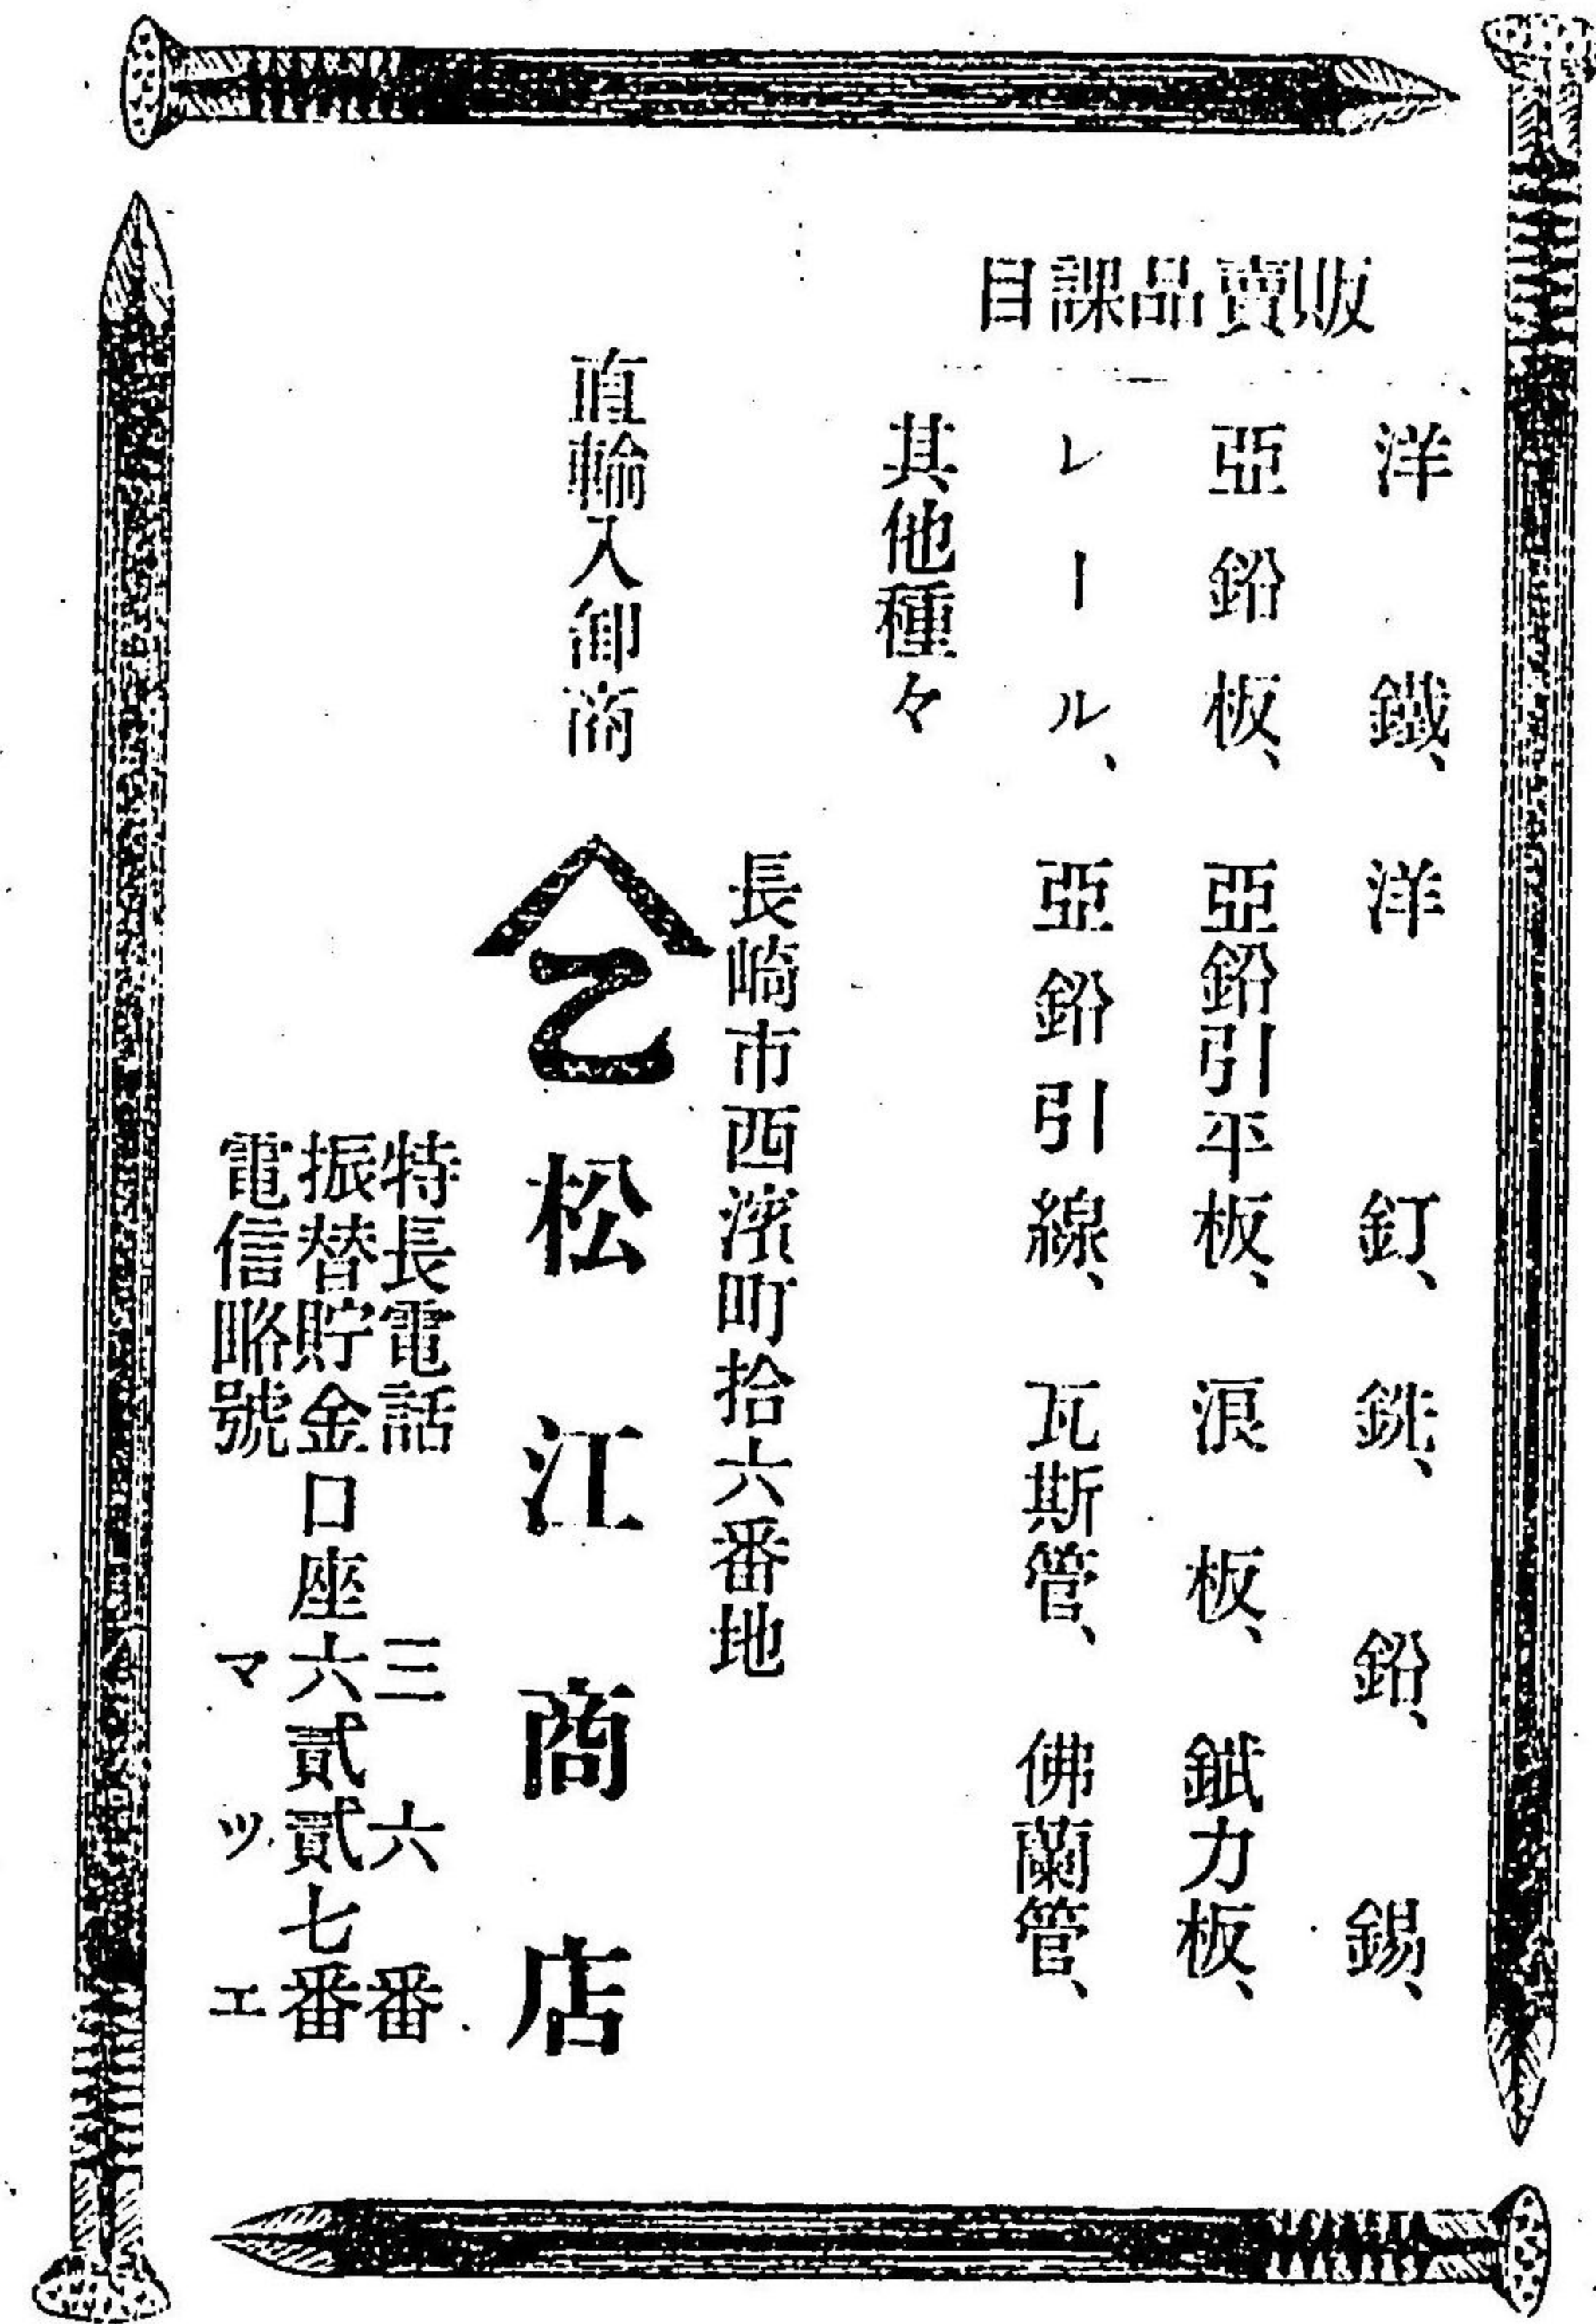 販賣品課目
洋鐵、洋釘、銑、鉛、錫、
亞鉛板、亞鉛引平板、浪板、錻力板、
レール、亞鉛引線、瓦斯管、佛蘭管、
其他種々
長崎市西濱町拾六番地
直輸入卸商 乙 松江商店
特長電話 三六番
振替貯金口座六貳貳七番
電信略號 マツエ